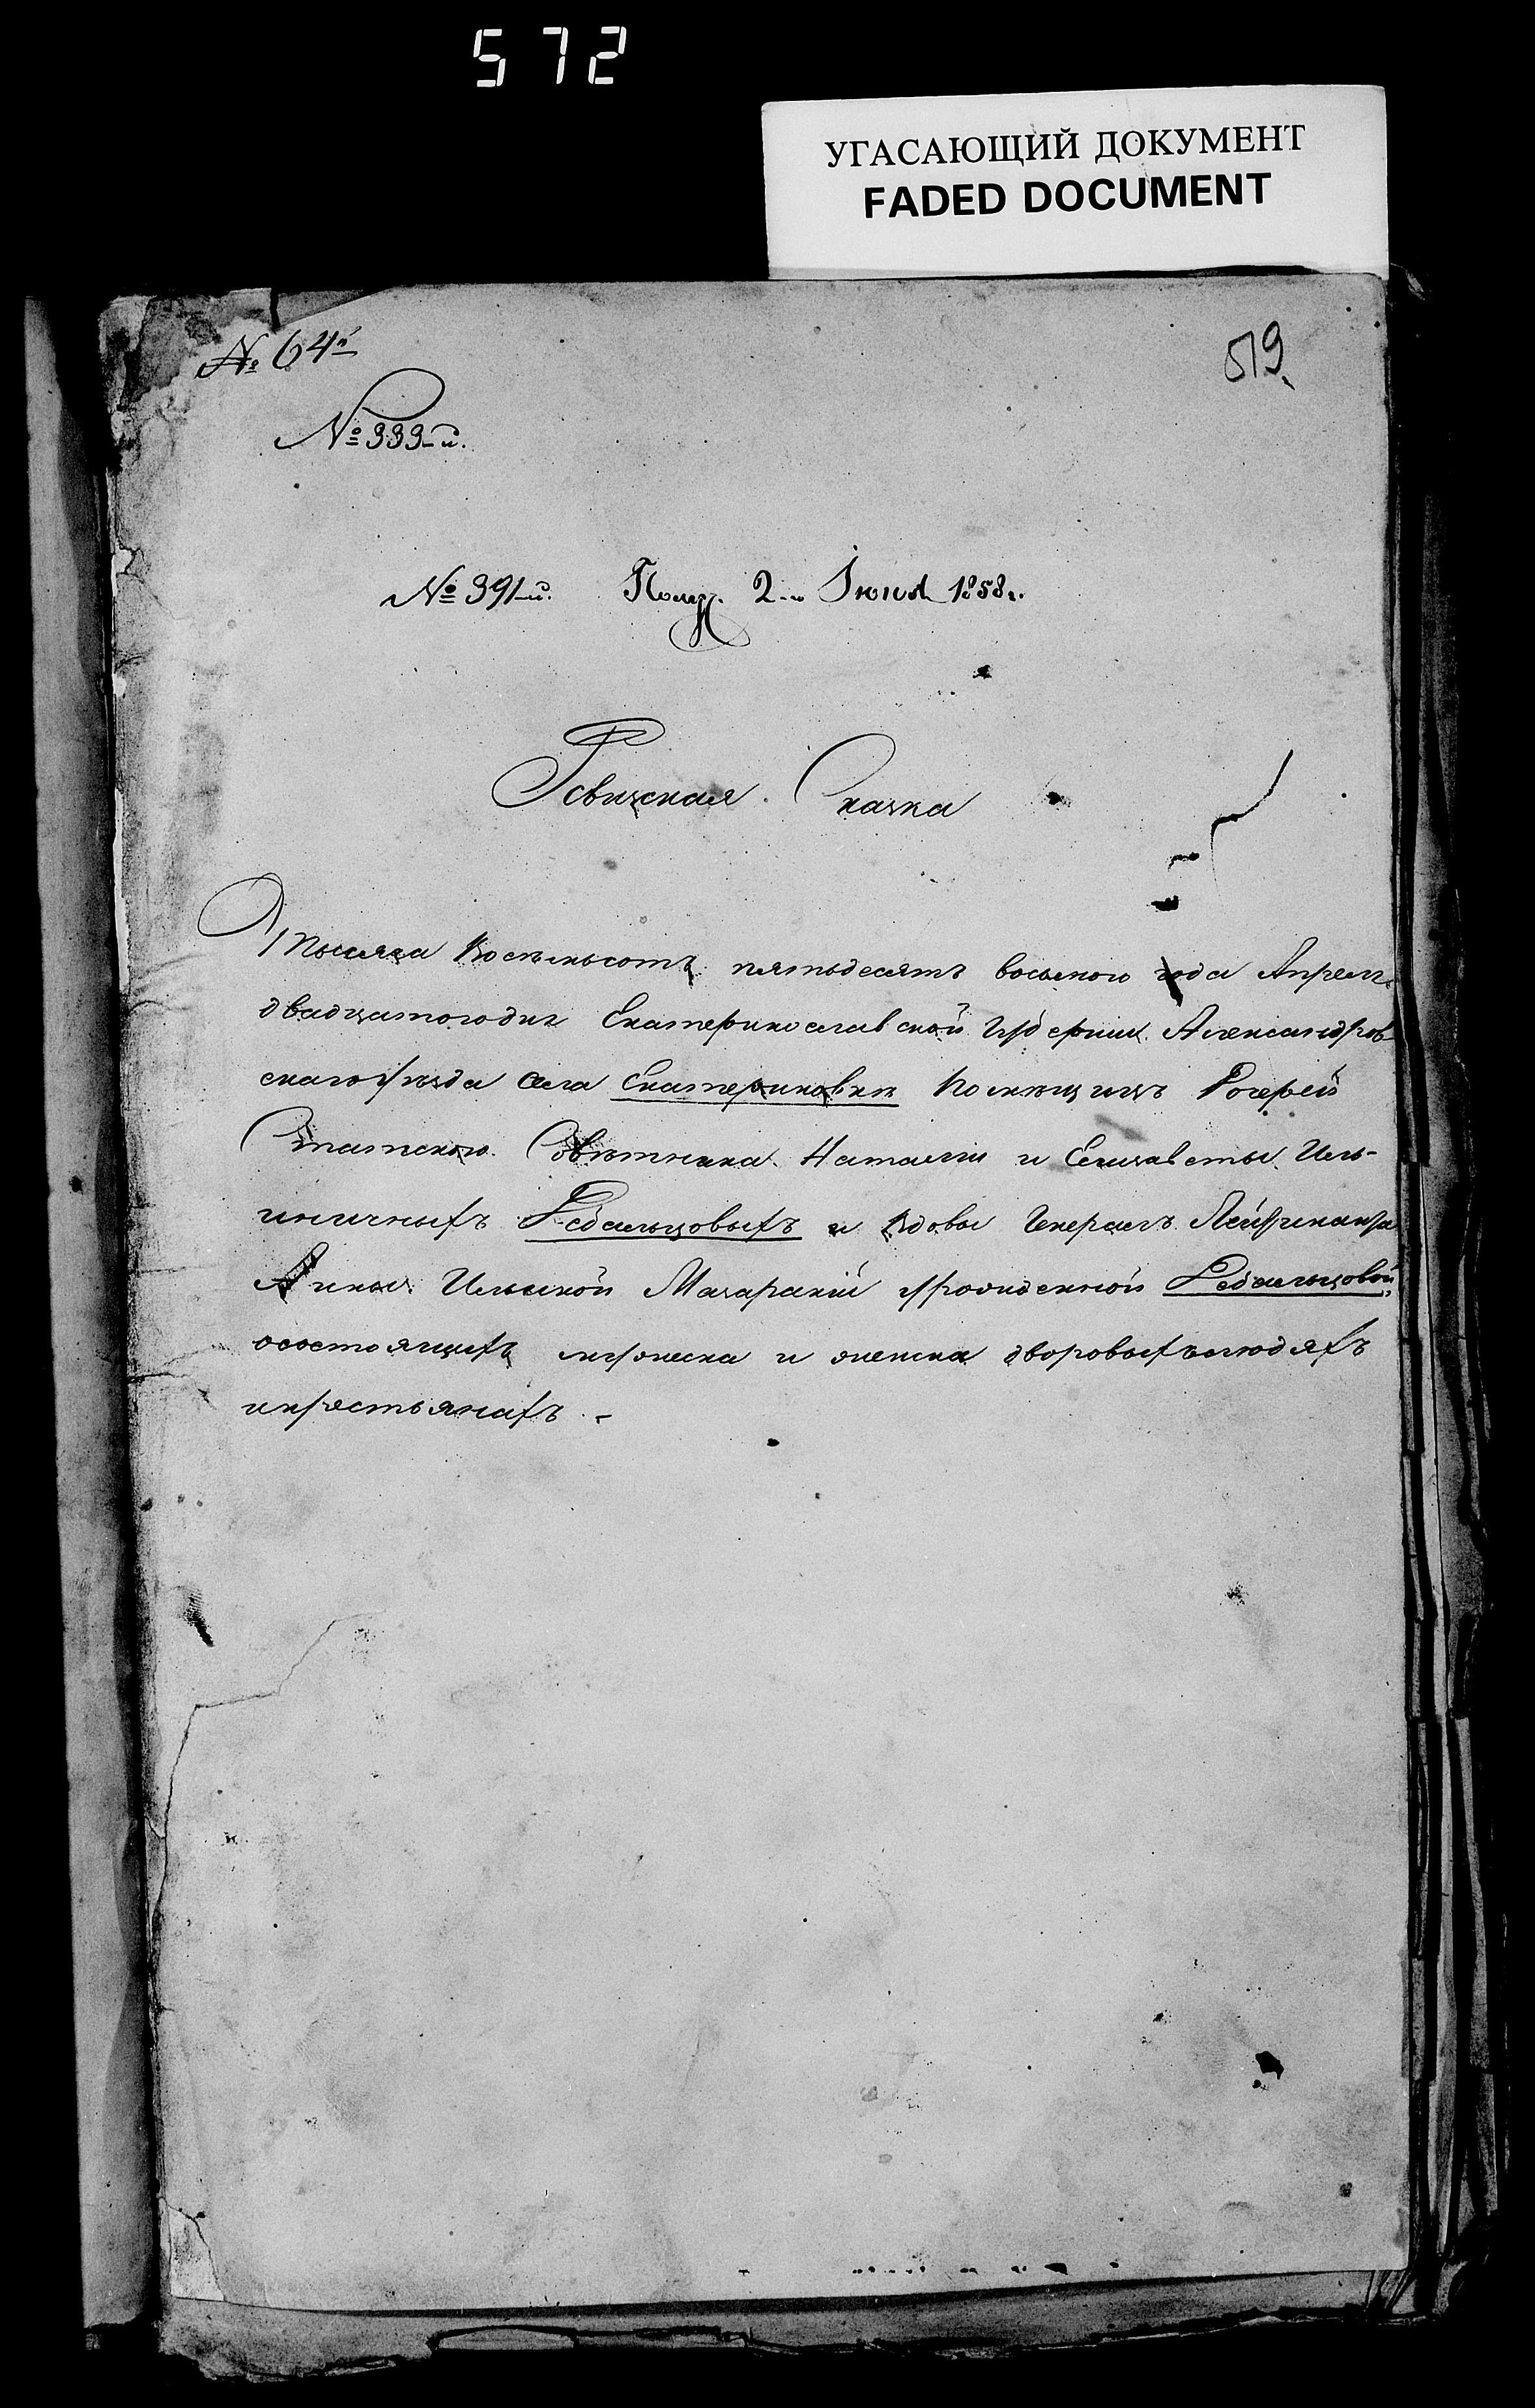 572
УГАСАЮЩИЙ ДОКУМЕНТ
FADED DOCUMENT
№ 64й
519
№ 333-й.
№ 391-й. Получ. 2-го Іюня 1858 г.
Ревизская Сказка
Тысяча Восемьсотъ пятьдесятъ восьмого года Апреля
двадцатогодня Екатеринославской Губерніи Александров-
скагоуѣзда Села Екатериновки Помѣщицъ Дочерей
Статскаго Совѣтника Наталіи и Елизаветы Иль-
иничныхъ и Вдовы Генералъ Лейтенанта
Анны Ильиной Мазараки урожденной
осостоящихъ мужеска и женска дворовыхълюдяхъ
икрестьянахъ. -